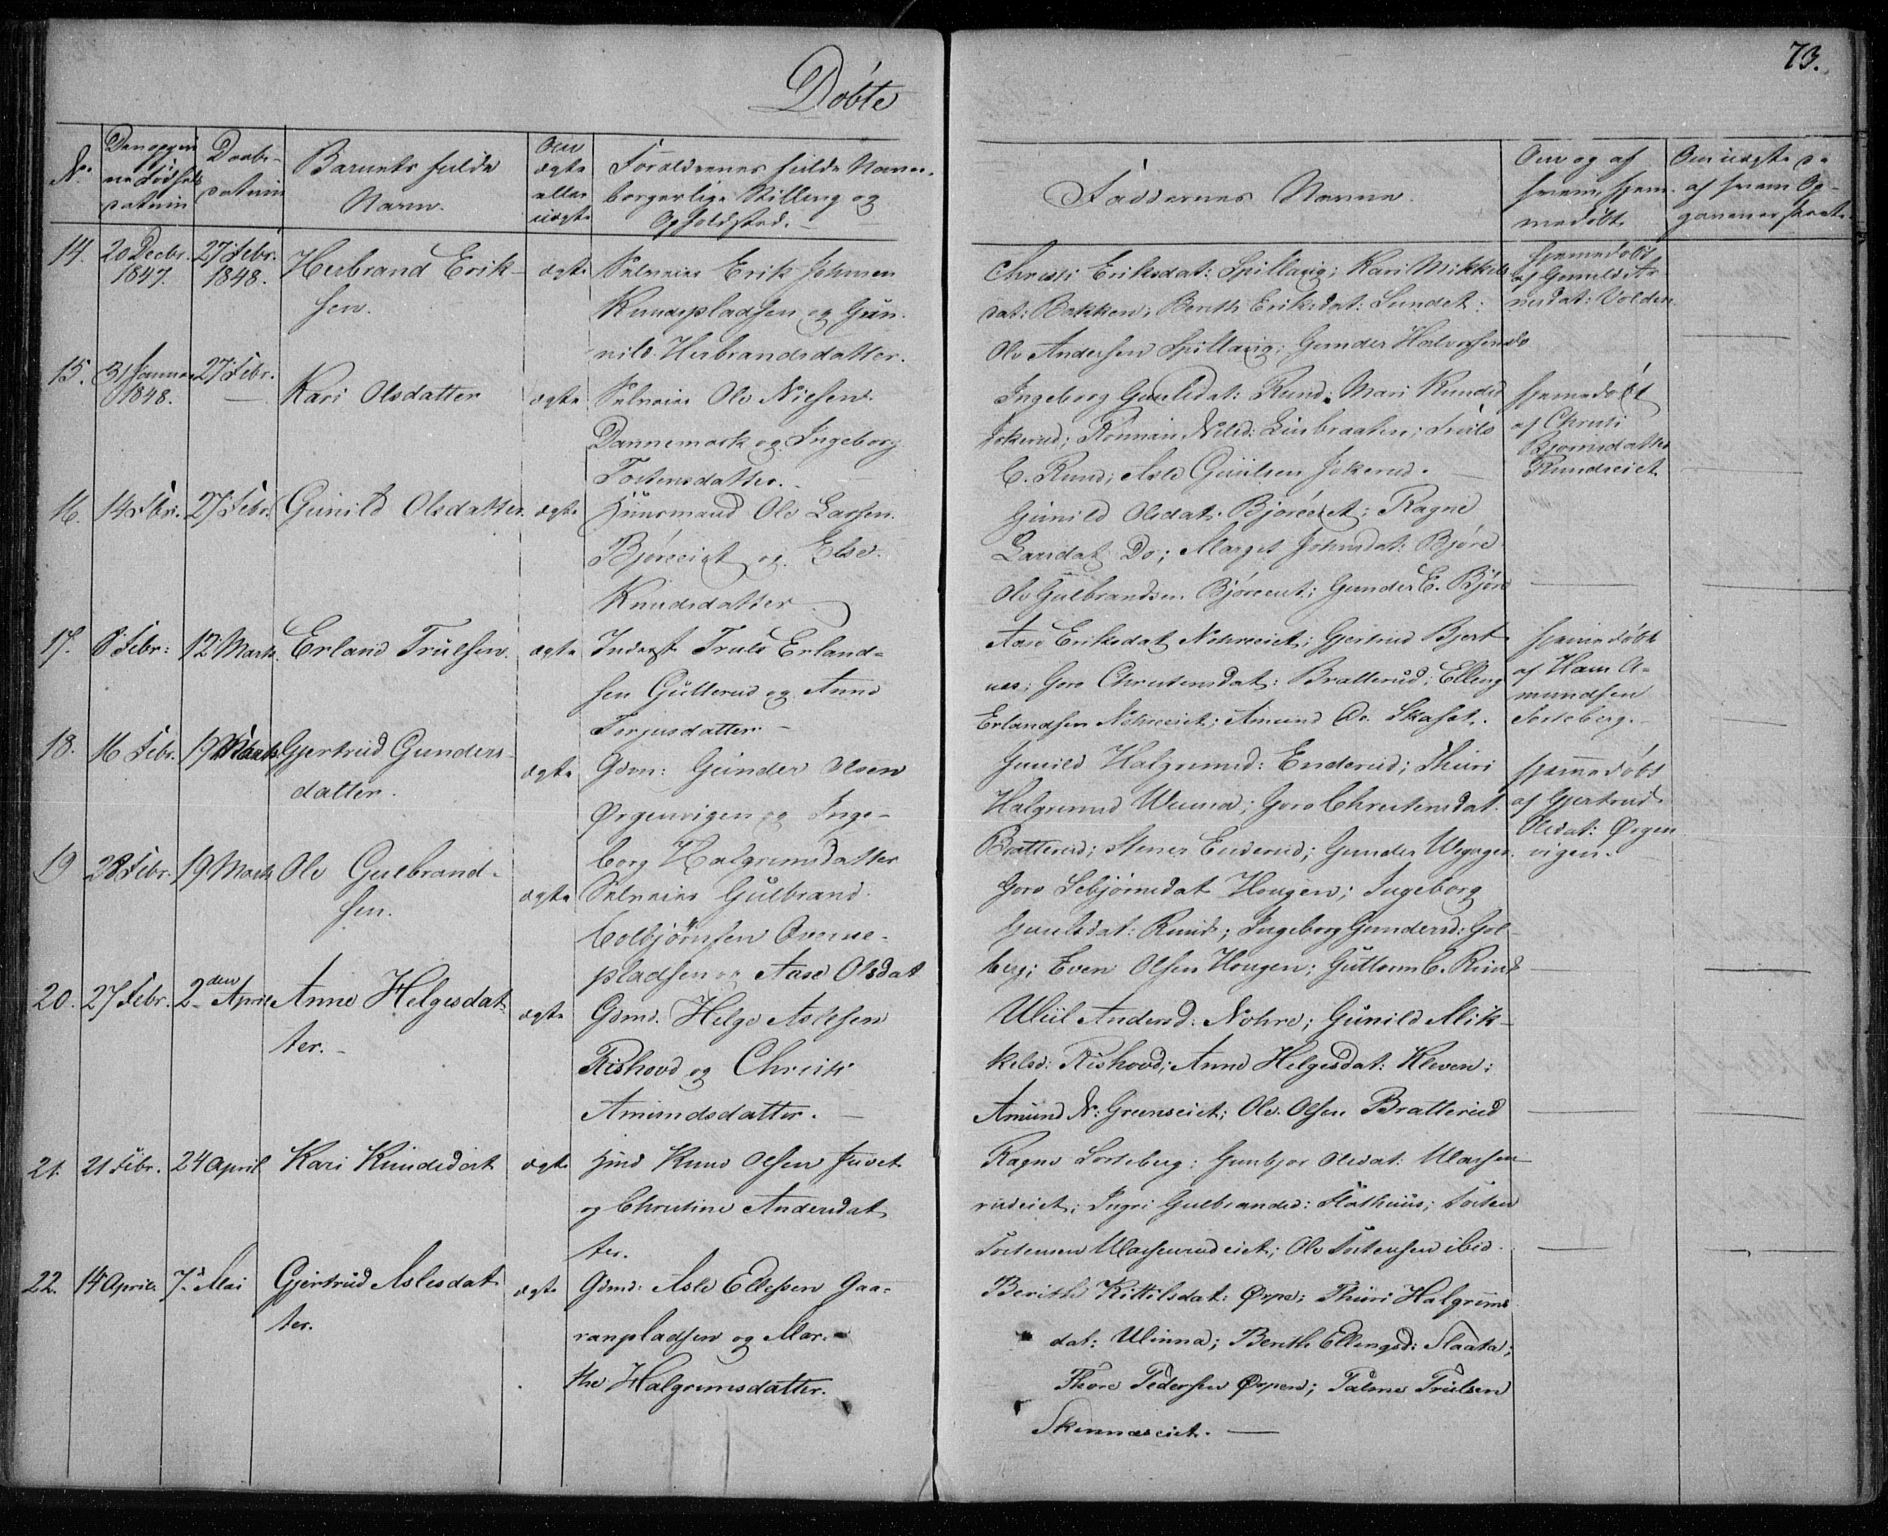 73.
Døbte
No.
Den opgivne Fødselsdatum
Daabsdatum
Barnets fulde Navn.
Om ægte eller uægte
Forældrenes fulde Navne, borgerlige Stilling og Opholdsted.
Faddernes Navne.
Om og af hvem hjemmedøbt
Om uægte da af hvem Opgaven er skeet.
14. 20 Decbr. 1847. 27 Febr. 1848. Herbrand Erik-
sen.
ægte Selveier Erik Johnsen
Rundepladsen og Gun-
nild Herbrandsdatter.
Christi Eriksdat: Spillaug; Kari Mikkels
dat: Bakken; Berith Eriksdat: Sundet;
Ole Andersen Spillaug; Gunder Halvorsen do
hjemmedøbt
af Gunild Ar-
nesdat: Volden
15. 31 Januar 1848. 27 Febr. Kari Olsdatter
ægte Selveier Ole Nielsen
Dannemark og Ingeborg
Tostensdatter.
Ingeborg Guulsdat: Rund; Mari Knudsd
Jokerud; Ronnau Nilsd: Liebraaten; Truls
C. Rund; Asle Guulsen Jokerud.
hjemmedøbt
af Christi
Bjørnsdatter
Rundseiet
16. 14 Fbr. 27 Febr. Gunild Olsdatter. ægte Huusmand Ole Larsen
Bjøreeiet og Else
Knudsdatter
Gunild Olsdat: Bjøreeiet; Ragne
Larsdat Do; Marget Johnsdat: Bjøre
Ole Gulbrandsen Bjøreeiet; Gunder E. Bjøre
17. 8 Febr: 12 Marts. Erland Trulsen. ægte Inderst Truls Erland-
sen Gutterud og Anne
Torjusdatter.
Aase Eriksdat Nohreeiet; Gjertrud Bjert-
næs; Goro Christensdat: Bratterud; Elling
Erlandsen Nohreeiet; Amund Do. Skafet.
hjemmedøbt
af Hans A-
mundsen
Sorteberg.
18. 16 Febr. 19 Marts Gjertrud Gunders-
datter.
ægte Gdm: Gunder Olsen
Ørgenvigen og Inge-
borg Halgrimsdatter
Gunild Halgrimsd: Enderud; Thuri
Halgrimsd Winna; Goro Christensdat:
Bratterud; Stener Enderud; Gunder
hjemmedøbt
af Gjertrud
Olsdat: Ørgen
vigen.
19 28 Febr. 19 Marts Ole Gulbrand-
sen.
ægte Selveier Gulbrand
Colbjørnsen Overne-
pladsen og Aase Olsdat
Goro Sebjørnsdat Hougen; Ingeborg
Guulsdat: Rund; Ingeborg Gundersd: Gol-
berg; Even Olsen Hougen; Guttorm C. Rund
20. 27 Febr. 2den April Anne Helgesdat-
ter.
ægte Gdmd. Helge Aslesen
Rishovd og Christi
Amundsdatter.
Uliil Andersd: Nohre; Gunild Mik-
kelsd: Rishovd; Anne Helgesdat: Kleven;
Amund N: Grenseiet; Ole Olsen Bratterud
21. 21 Febr. 24 April Kari Knudsdat ægte Hmd Knud Olsen Juvet
og Christine Andersdat
ter.
Ragne Sorteberg; Gunbjør Olsdat: Ulassen-
rudeiet; Ingri Gulbrandsd: Flathuus; Torsten
Tostensen Ulassenrudeiet; Ole Tostensen ibid.
22. 14 April 7de Mai Gjertrud Aslesdat
ter.
ægte Gdmd: Asle Ellefsen Gaa-
ranpladsen og Mar-
the Halgrimsdatter.
Berith Kittilsdat: Ørpe; Thuri Halgrims
dat: Winna; Berith Ellingsd: Slaata;
Thore Pedersen Ørpen; Palme Trulsen
Skinnæseiet.